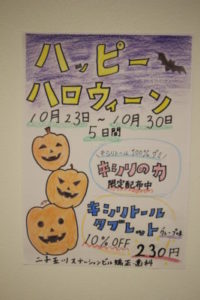 ハッピー
ハロウィーン
10月23日～10月30日
5日間
キシリトール100%ガム
キシリの力
限定配布中
キシリトール
タブレット
10%OFF 230円
二子玉川ステーションビル矯正歯科